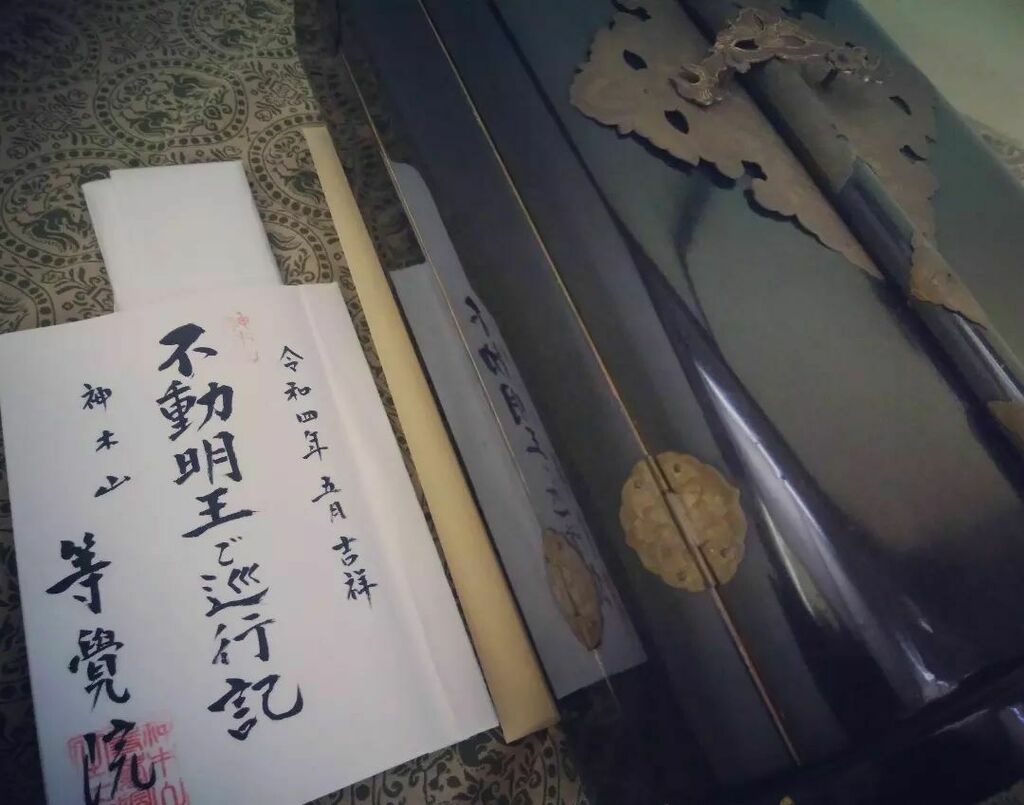 令和四年 五月 吉祥
不動明王ご巡行記
神木山 等覺院